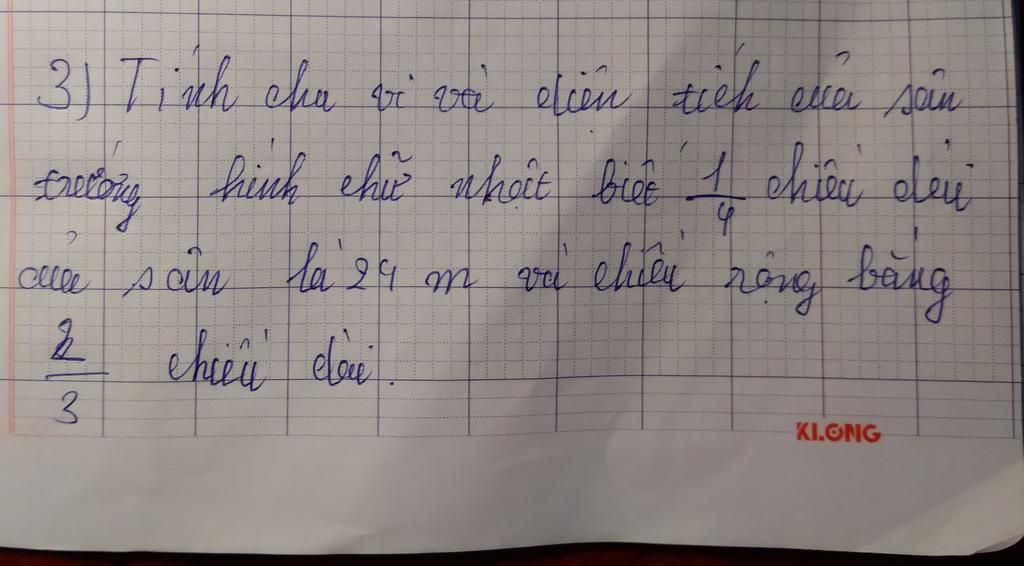 3) Tính chu vi và diện tích của sân
trường hình chữ nhật biết 1/4 chiều dài
của sân là 24 m và chiều rộng bằng
2/3 chiều dài.
KLONG